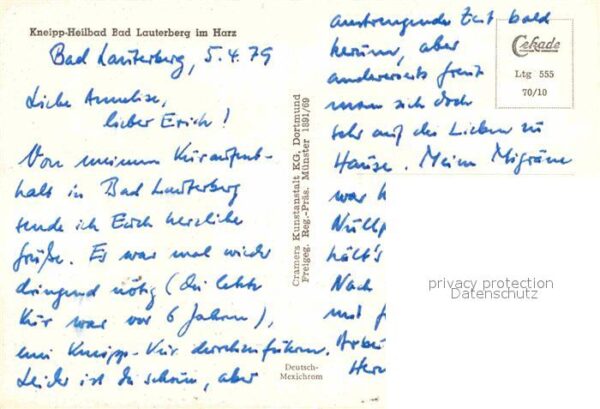 Kneipp-Heilbad Bad Lauterberg im Harz
Bad Lauterberg, 5.4.79
Liebe Annelise,
lieber Erich!
Von meinem Kuraufent-
halt in Bad Lauterberg
sende ich Euch herzliche
Grüße. Es war mal wieder
dringend nötig (die letzte
Kur war vor 6 Jahren),
eine Kneipp-Kur durchzuführen.
Leider ist die schöne, aber
anstrengende Zeit bald
herum, aber
andererseits freut
man sich doch
sehr auf die Lieben zu
Hause. Meine Migräne
war
Nullp
hält's
Nach
mit
Arbei
Her
Cramers Kunstanstalt KG. Dortmund
Freigeg. Reg.-Präs. Münster 1891/69
Deutsch-
Mexichrom
Cekade
Ltg 555
70/10
privacy protection
Datenschutz